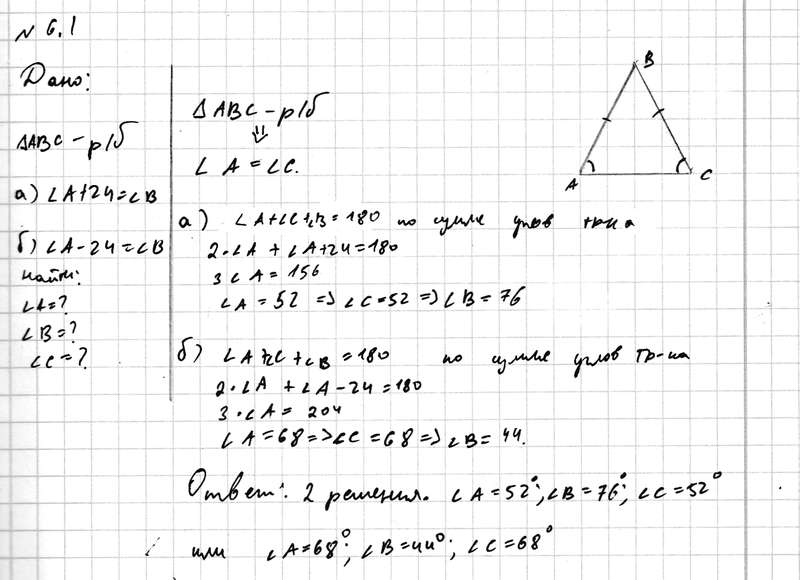 № 6.1
Дано:
ΔABC - р/б
а) ∠A+24=∠B
б) ∠A-24=∠B
найти:
∠A=?
∠B=?
∠C=?
ΔABC - р/б
⇓
∠A=∠C.
B
A
C
а) ∠A+∠C+∠B=180 по сумме углов тр-ка
2·∠A + ∠A+24=180
3∠A=156
∠A=52 => ∠C=52 => ∠B=76
б) ∠A+∠C+∠B=180 по сумме углов тр-ка
2·∠A + ∠A-24=180
3·∠A= 204
∠A=68=>∠C=68=>∠B=44.
Ответ: 2 решения. ∠A=52°; ∠B=76°; ∠C=52°
или ∠A=68°; ∠B=44°; ∠C=68°